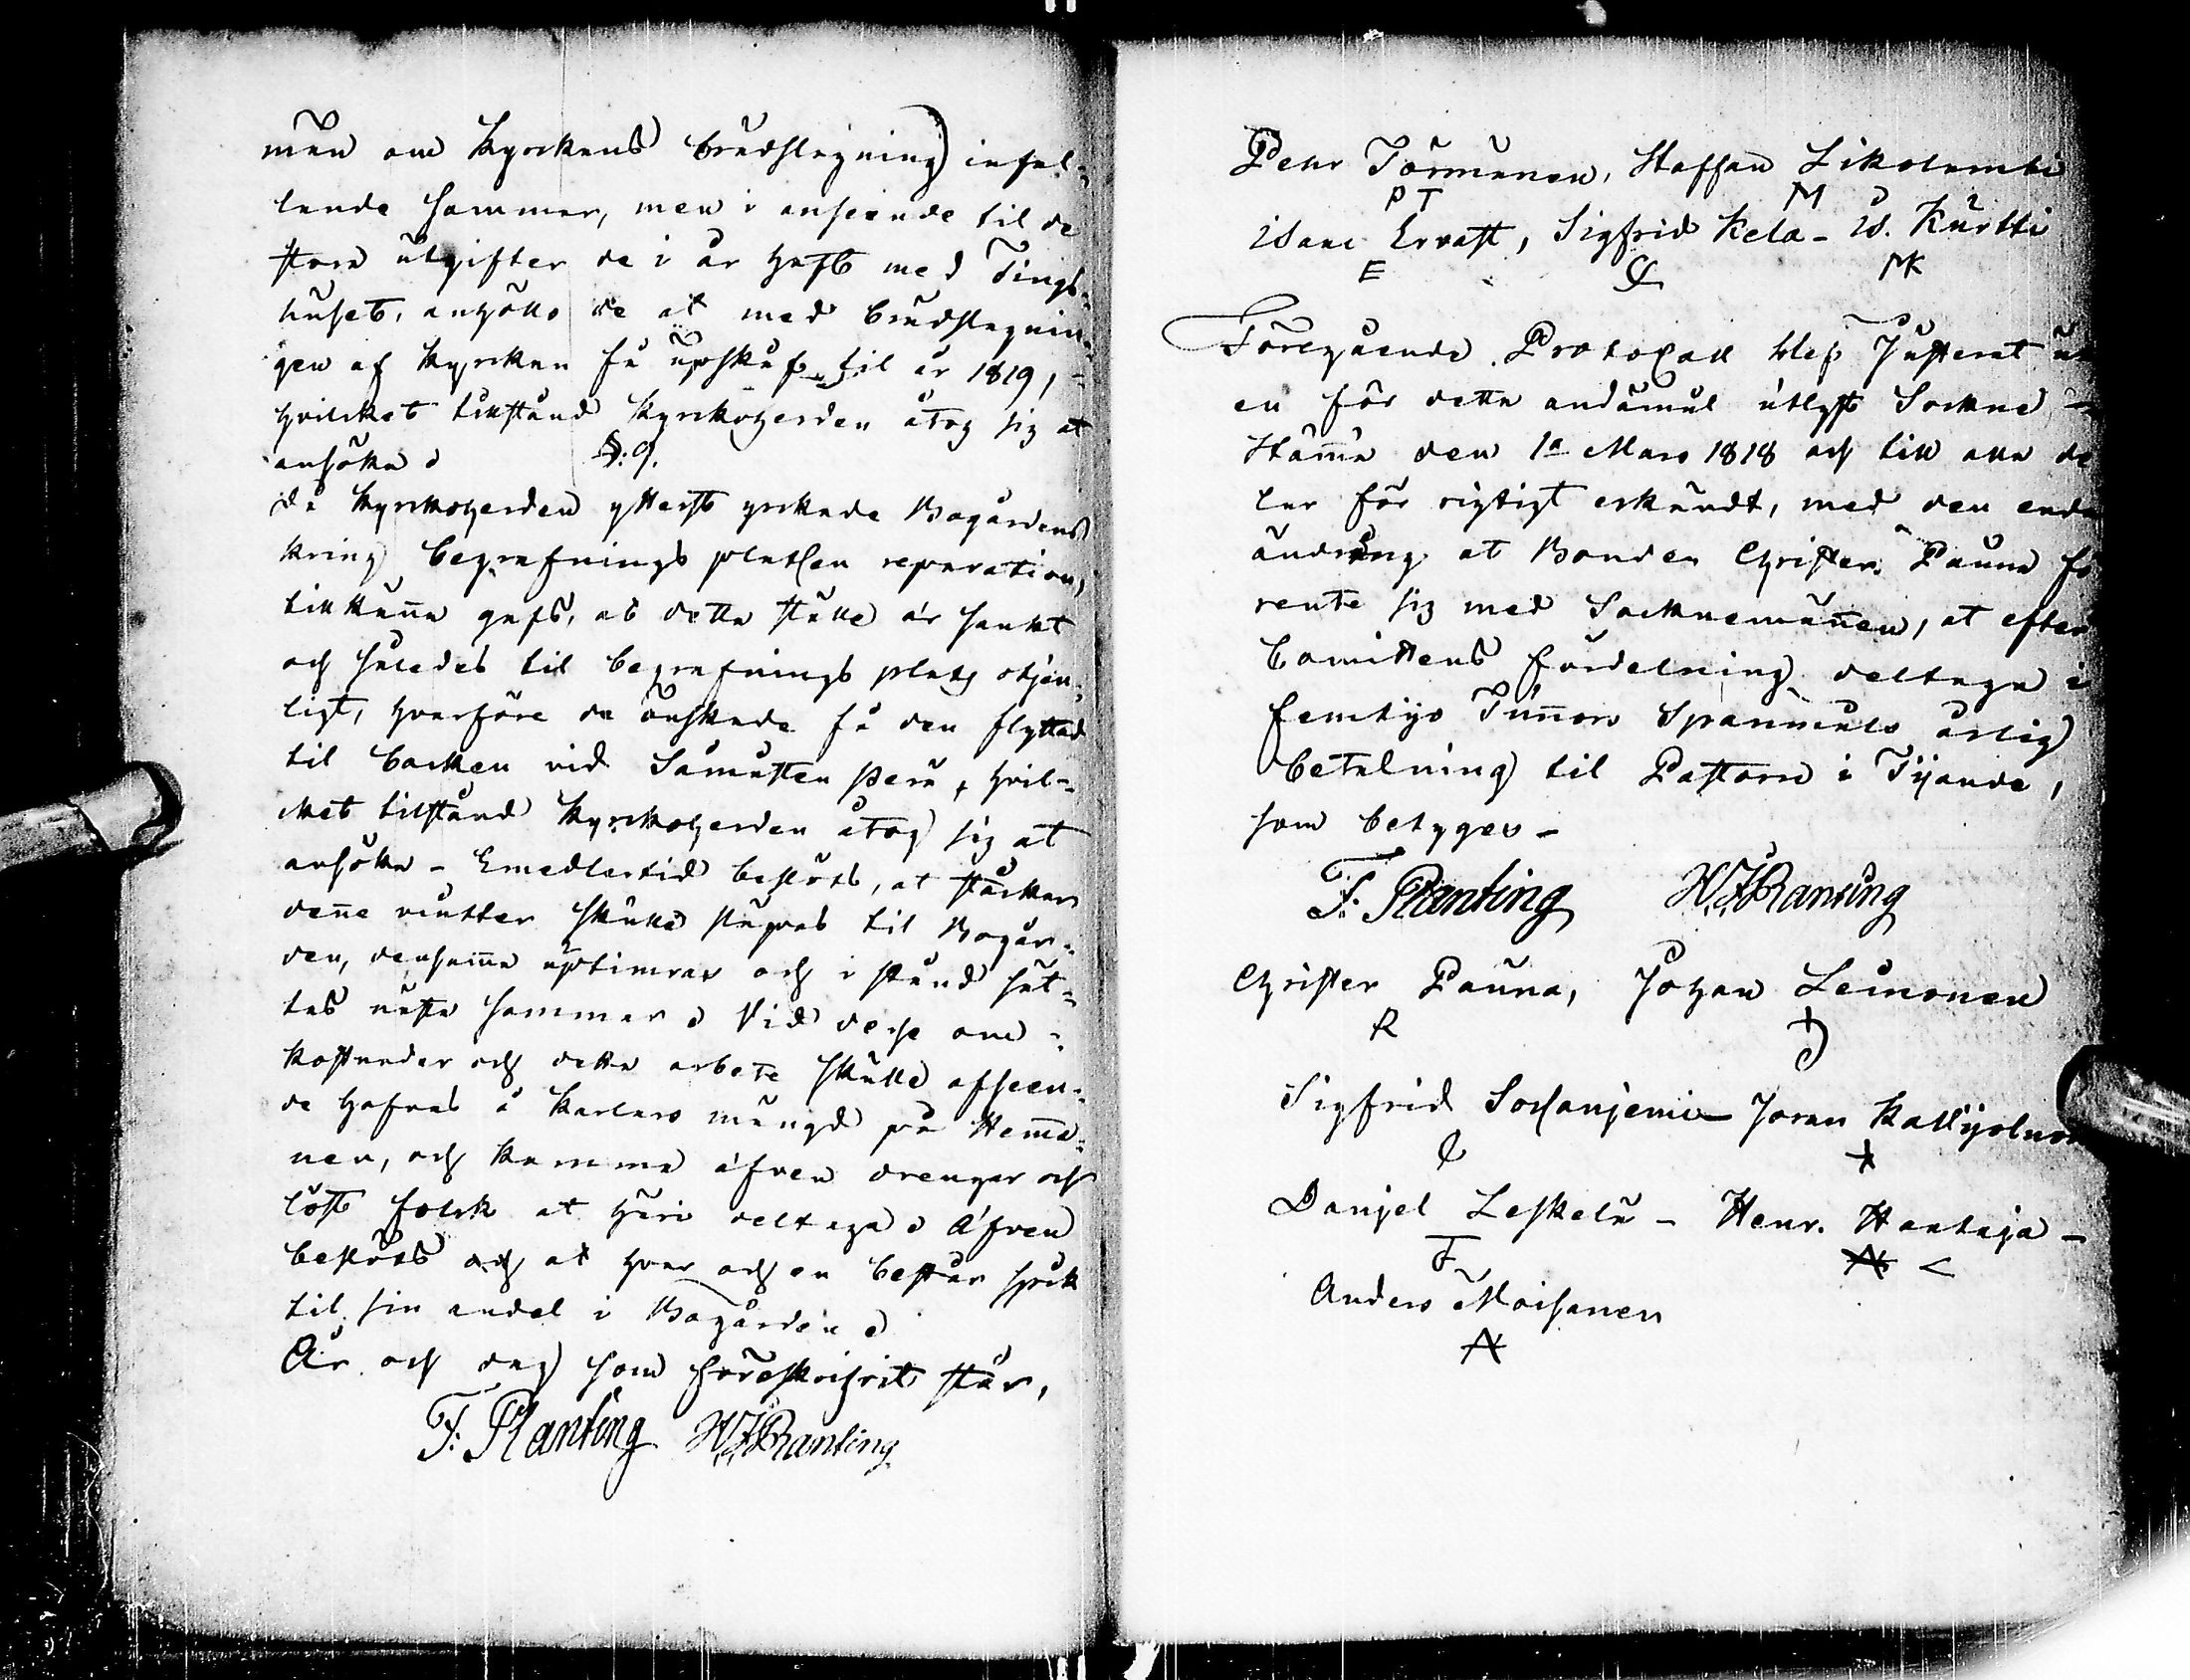 män om Kyrckans brädslagning infal-
lande sommar, men i anseende til de
stora utgifter de i år haft med Tings-
huset, anhöllo de at med brädslagnin-
gen af Kyrckan få upskof til år 1819,
hvilcket tillstånd Kyrckoherden åtog sig at
ansöka.
§: 9.
Då Kyrckoherden ytterst yrckade Bogårdens
kring begrafnings platsen reparation,
tillkänna gafs, at detta ställe är sankt
och således til begrafnings plats otjen-
ligt, hvarföre de önskade få den flyttad
til backen vid Sämutten Perä, hvil-
cket tilstånd Kyrckoherden åtog sig at
ansöka - Emedlertid beslöts, at stäckar
denne vintter skulle släpas til Bogår-
den, densamma uptimras och i stånd sät-
tas nästa sommar. Vid dese om-
kostnader och detta arbete skulle afseen-
de hafvas å Karlars mängd på Hemma-
nen, och komma äfven drengar och
löst folck at häri deltaga. Äfven
beslöts och at hvar och en består spik
til sin andel i Bogården.
År och dag som föreskrifvit står,
F: Planting HJRanting
Pehr Törmänen, Staffan Likolambi
PT M
Isaac Ervast, Sigfrid Kela - Is. Kurtti
E MK
Föregående Protocoll blef Justerat uti
en för detta andämål utlyst Sockne-
Stämma den 1a Mars 1818 och till alla de
lar för rigtigt erkändt, med den enda
ändring at Bonden Christer Pauna fö
rente sig med Socknemännen, at efter
Comittens fördelning deltaga i
femtijo Tunnors Spanmåls årlig
betalning til Pastorn i Tijonde,
som betygar -
F: Planting HJRanting
Christer Pauna, Johan Leinonen
R
Sigfrid Sossanjemi - Joran Kallijoinen
Danjel Leskelä - Henr. Hautaja -
F
Anders Moisanen
A